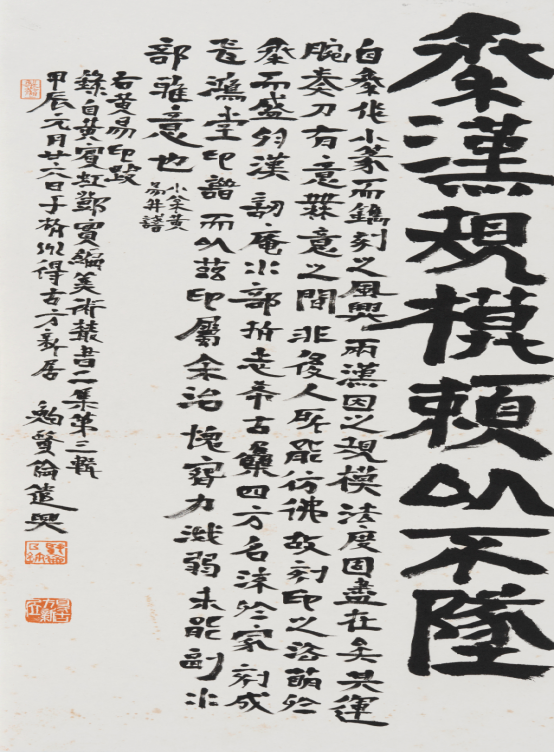 秦漢規模賴以不墜
自秦作小篆而鐫刻之風興兩漢因之規模法度固盡在矣其運
腕奏刀有意無意之間非後人所能彷彿故刻印之法萌於
秦而盛於漢訒庵水部志希古四方名流於冢刻成
飛鴻堂印譜而以茲印屬余治愧力淺弱未能副水
部雅意也
小黃
易并
右黃易印跋
錄自黃賓虹鄧實編美術叢書二集第三輯
甲辰元月廿八日于得古方新居賢倫遣興